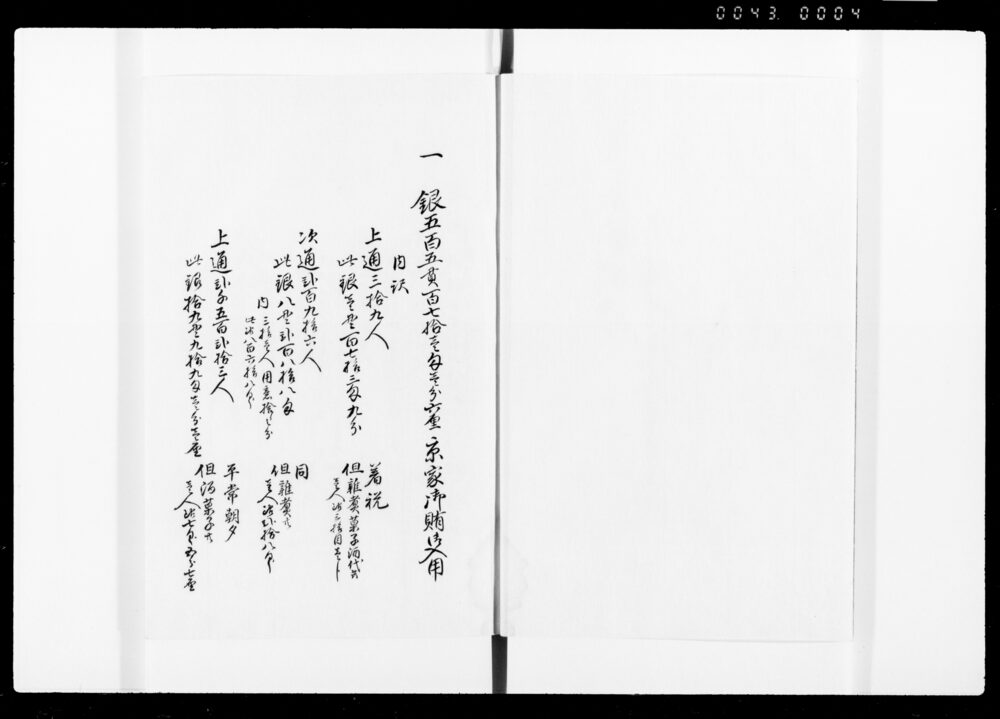 0043. 0004
一 銀五百五貫百七拾壱匁壱分六厘 京家御賄御入用
内訳
上通三拾九人 着祝
此銀壱貫百七拾三匁九分 但雑煮菓子酒代共
壱人ニ付三拾目壱分
次通弐百九拾六人 同
此銀八貫弐百八拾八匁 但雑煮共
壱人ニ付弐拾八匁
内 三拾壱人 用意
此銀八百六拾八匁
上通弐千五百弐拾三人 平常朝夕
此銀拾九貫九拾九匁壱分壱厘 但酒菓子共
壱人ニ付七匁五分七厘